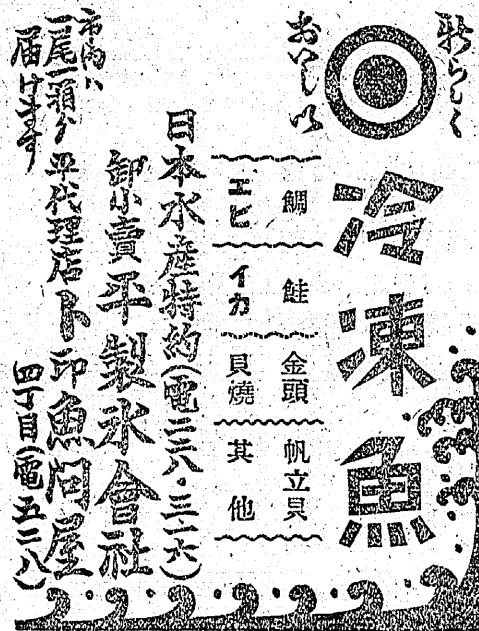 新らしく
おいしい
冷凍魚
鯛
鮭
金頭
帆立貝
エビ
イカ
貝燒
其他
日本水産特約(電二六・三一六)
卸小賣平製氷會社
平代理店卜印魚問屋
四丁目(電五二八)
市内ハ
一尾一箱ヨリ
届けます